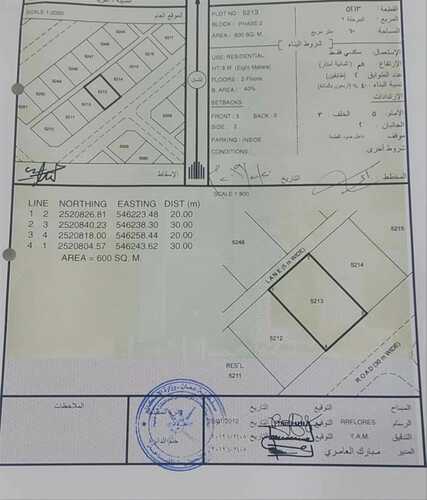 الموقع العام
SCALE 1:2000
5214
5213
5212
الإسقاط
PLOT NO : 5213
BLOCK : PHASE 2
AREA : 600 SQ. M.
USE: RESIDENTIAL
HT: 8 M (Eight Meters)
FLOORS : 2-Floors
B. AREA : 40%
SETBACKS
FRONT : 5 BACK : 3
SIDE : 2
PARKING : INSIDE
CONDITIONS :
القطعة ٥٢١٣
المربع المرحلة ٢
المساحة ٦٠٠ متر مربع
شروط البناء
الإستعمال سكني فقط
الارتفاع ٨م (ثمانية أمتار)
عدد الطوابق ٢ (طابقين)
نسبة البناء ٤٠ %
الإرتدادات
الأمام ٥ الخلف ٣
الجانبان ٢
موقف داخل حدود القطعة
شروط أخرى
المخطط
التاريخ
SCALE 1:500
LINE NORTHING EASTING DIST (M)
1 2 2520826.81 546223.48 20.00
2 3 2520840.23 546238.30 30.00
3 4 2520818.00 546258.44 20.00
4 1 2520804.57 546243.62 30.00
AREA = 600 SQ. M.
5246
5215
LANE (6 m WIDE)
5214
5213
5212
RES'L
5211
ROAD (30 m WIDE)
الملاحظات
المساح
الرسام RRFLORES التوقيع التاريخ
التدقيق Y.A.M. التوقيع التاريخ
المدير مبارك العامري التوقيع التاريخ